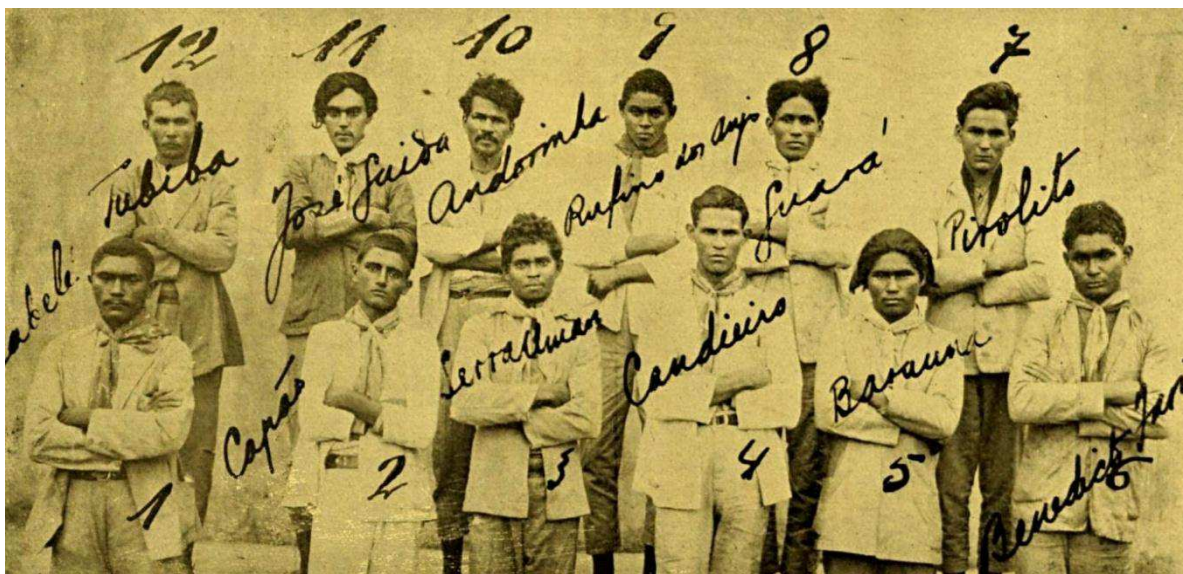 12 11 10 9 8 7
Tubiba
José Guida
Andorinha
Rufino dos Anjos
Guará
Pirolito
abelé
Capão
Serra Uman
Candieiro
Barauna
Benedicto
1 2 3 4 5 6